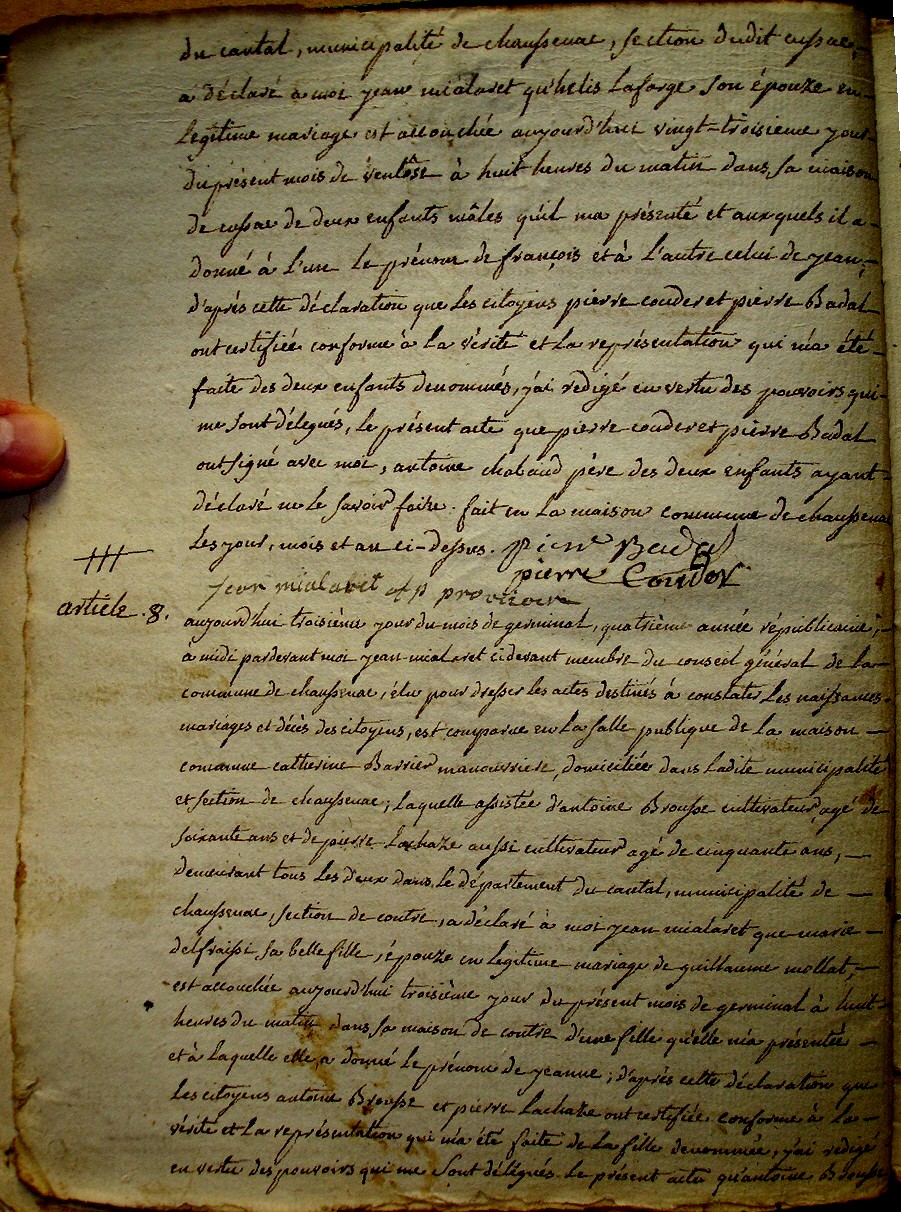 du cantal, municipalité de chaussenac, section dudit cussac,
a déclaré à moi jean mialaret qu'helis Lafarge son épouze en
Legitime mariage est accouchée aujourd'hui vingt-troisieme jour
du présent mois de ventôse à huit heures du matin dans sa maison
de cussac de deux enfants mâles qu'il ma présenté et auxquels il a
donné à l'un le prénom de françois et à l'autre celui de jean;
d'après cette déclaration que les citoyens pierre couder et pierre Badal
ont certifiée conforme à la vérité et la représentation qui m'a été
faite des deux enfants denommés, j'ai redigé en vertu des pouvoirs qui
me sont délegués, le présent acte que pierre couder et pierre Badal
ont signé avec moi, antoine chabaud père des deux enfants ayant
déclaré ne le savoir faire. fait en la maison commune de chaussenac
Les jour, mois et an ci-dessus. pierre Badal
pierre Couder
Jean mialaret
article .8.
aujourd'hui troisième jour du mois de germinal, quatrième année républicaine,
à midi pardevant moi jean mialaret cidevant membre du conseil général de la
commune de chaussenac, élu pour dresser les actes destinés à constater les naissances
mariages et décès des citoyens, est comparue en la salle publique de la maison
commune catherine Barrier manouvriere, domiciliée dans ladite municipalité
et section de chaussenac; laquelle assistée d'antoine Brousse cultivateur agé de
soixante ans et de pierre Lachaze aussi cultivateur agé de cinquante ans,
demeurant tous les deux dans le département du cantal, municipalité de
chaussenac, section de contre, a déclaré à moi jean mialaret que marie
delfraissi sa belle fille, épouze en legitime mariage de guilhaume mollat,
est accouchée aujourd'hui troisième jour du présent mois de germinal à huit
heures du matin dans sa maison de contre d'une fille qu'elle m'a présentée
et à laquelle elle a donné le prénom de jeanne; d'après cette déclaration que
les citoyens antoine Brousse et pierre Lachaze ont certifiée conforme à la
vérité et la représentation qui m'a été faite de la fille denommée, j'ai redigé
en vertu des pouvoirs qui me sont délégués le présent acte qu'antoine Brousse